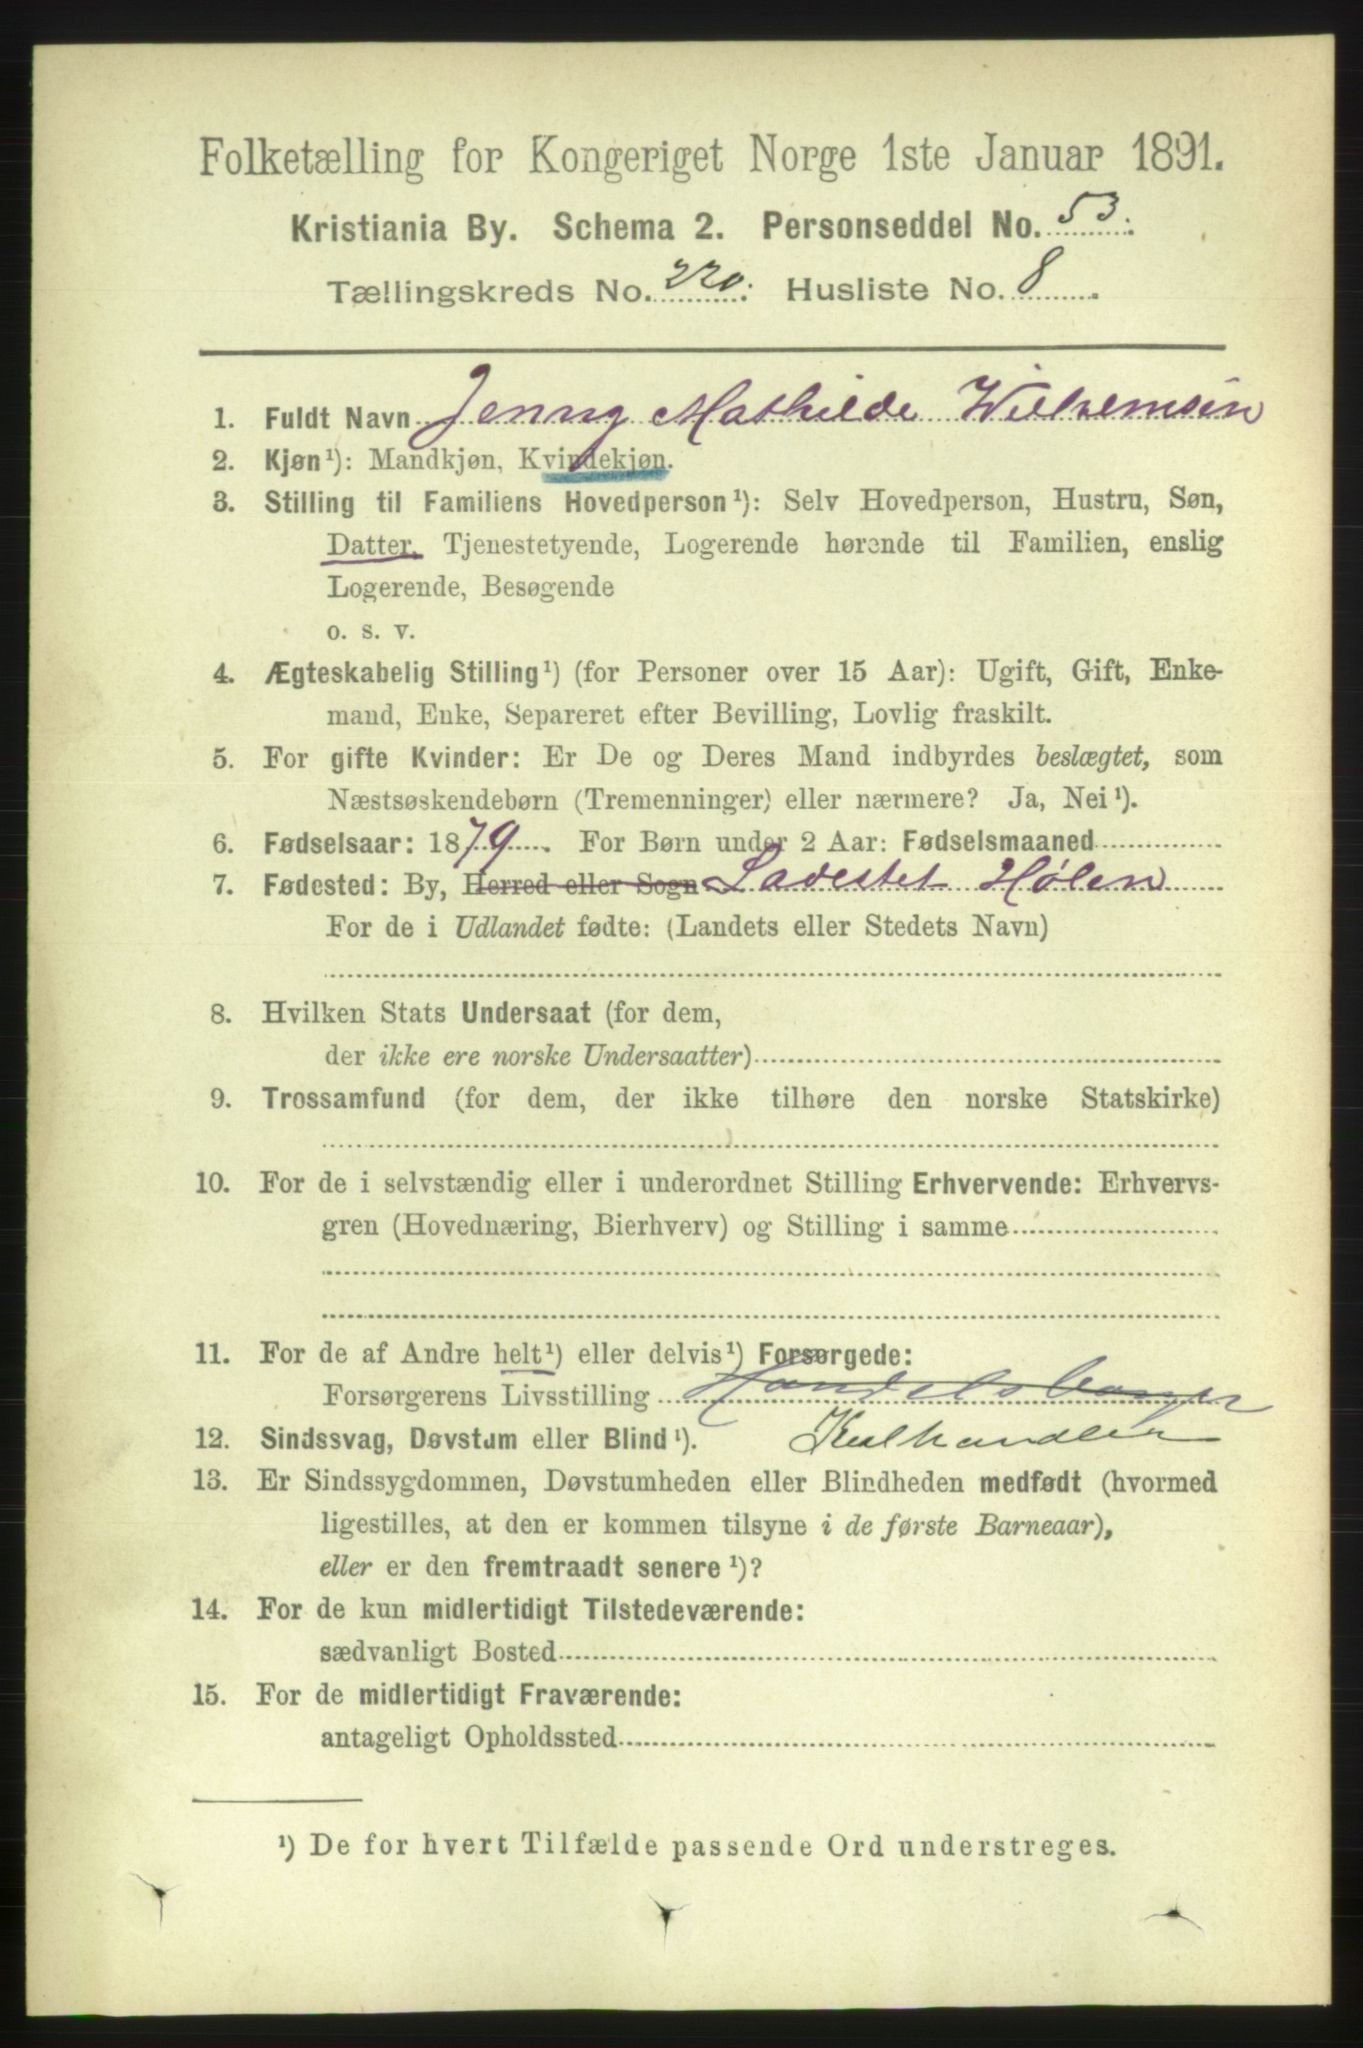 Folketælling for Kongeriget Norge 1ste Januar 1891.
Kristiania By. Schema 2. Personseddel No. 53.
Tællingskreds No. 220. Husliste No. 8.
1. Fuldt Navn Jenny Mathilde Wilhemsen
2. Kjøn¹): Mandkjøn, Kvindekjøn.
3. Stilling til Familiens Hovedperson¹): Selv Hovedperson, Hustru, Søn,
Datter, Tjenestetyende, Logerende hørende til Familien, enslig
Logerende, Besøgende
o. s. v.
4. Ægteskabelig Stilling¹) (for Personer over 15 Aar): Ugift, Gift, Enke-
mand, Enke, Separeret efter Bevilling, Lovlig fraskilt.
5. For gifte Kvinder: Er De og Deres Mand indbyrdes beslægtet, som
Næstsøskendebørn (Tremenninger) eller nærmere? Ja, Nei¹).
6. Fødselsaar: 1879. For Børn under 2 Aar: Fødselsmaaned
7. Fødested: By, Herred eller Sogn Ladestet Hølen
For de i Udlandet fødte: (Landets eller Stedets Navn)
8. Hvilken Stats Undersaat (for dem,
der ikke ere norske Undersaatter)
9. Trossamfund (for dem, der ikke tilhøre den norske Statskirke)
10. For de i selvstændig eller i underordnet Stilling Erhvervende: Erhvervs-
gren (Hovednæring, Bierhverv) og Stilling i samme
11. For de af Andre helt¹) eller delvis¹) Forsørgede:
Forsørgerens Livsstilling Handelsborger
12. Sindssvag, Døvstum eller Blind¹). Kulhandler
13. Er Sindssygdommen, Døvstumheden eller Blindheden medfødt (hvormed
ligestilles, at den er kommen tilsyne i de første Barneaar),
eller er den fremtraadt senere¹)?
14. For de kun midlertidigt Tilstedeværende:
sædvanligt Bosted
15. For de midlertidigt Fraværende:
antageligt Opholdssted
¹) De for hvert Tilfælde passende Ord understreges.